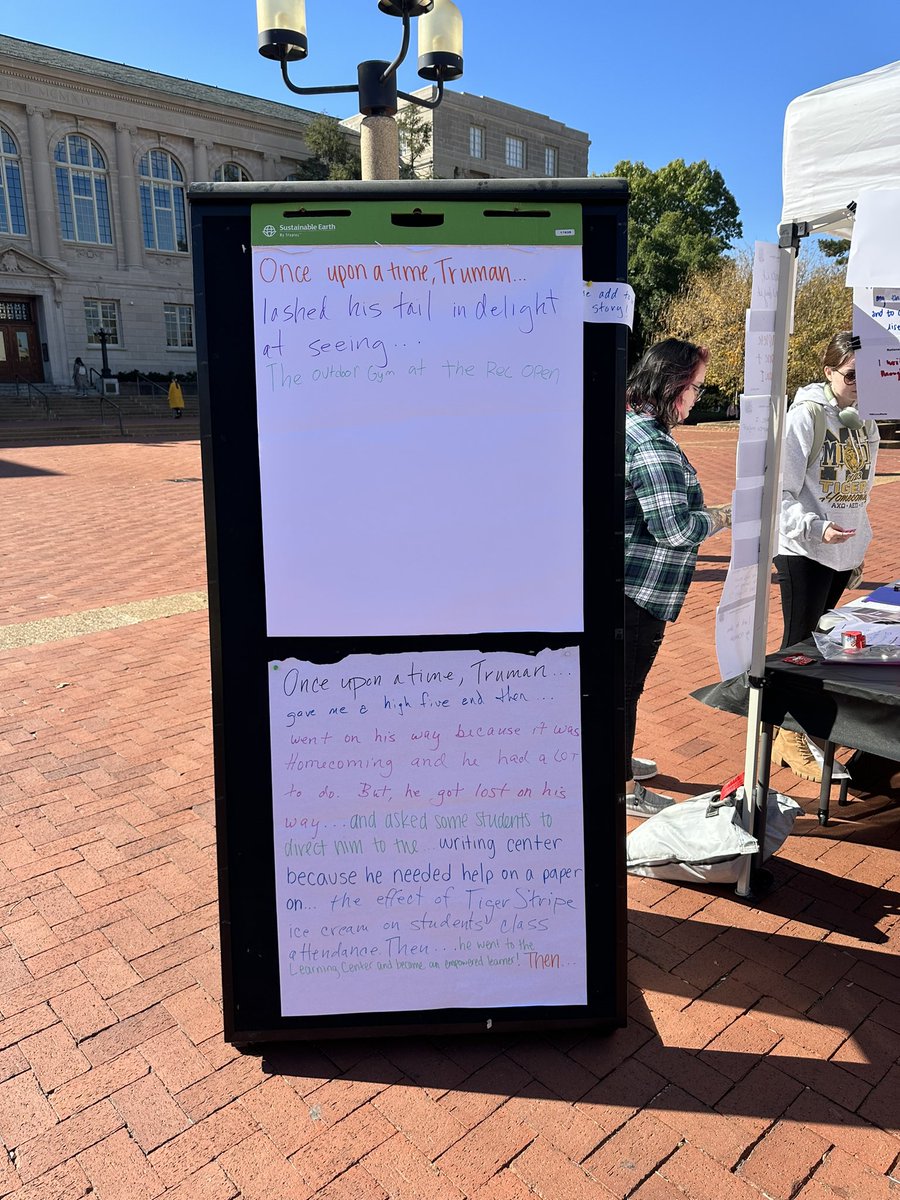 Sustainable Earth
By Staples
Once upon a time, Truman...
lashed his tail in delight
at seeing...
The Outdoor Gym at the Rec open
add to
story!
Once upon a time, Truman...
gave me a high five and then...
went on his way because it was
Homecoming and he had a LOT
to do. But, he got lost on his
way...and asked some students to
direct him to the... writing center
because he needed help on a paper
on... the effect of Tiger Stripe
ice cream on students' class
attendance. Then... he went to the
Learning Center and became an empowered learner! Then...
and to
TIGER
Homecoming
ΑΧΩ